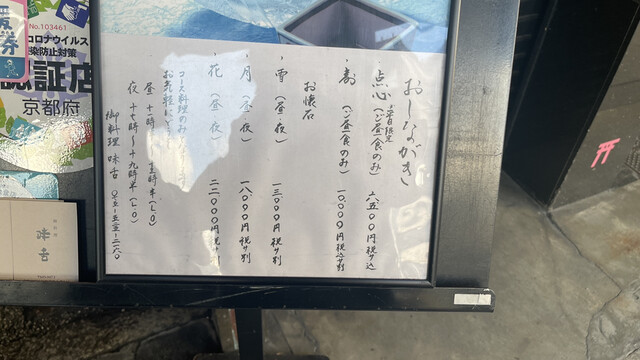 おしながき
点心 平日限定(ご昼食のみ) 六五〇〇円 税サ込
寿 (ご昼食のみ) 一〇〇〇〇円 税込サ別
お懐石
雪 (昼・夜) 一三〇〇〇円 税サ別
月 (昼・夜) 一八〇〇〇円 税サ別
花 (昼・夜) 二二〇〇〇円 税サ
コース料理のみ
お気軽に
昼 十二時 時半(L.O)
夜 十七時〜十九時半(L.O)
御料理 味舌
No.103461
コロナウイルス
染防止対策
認証店
京都府
券
味舌